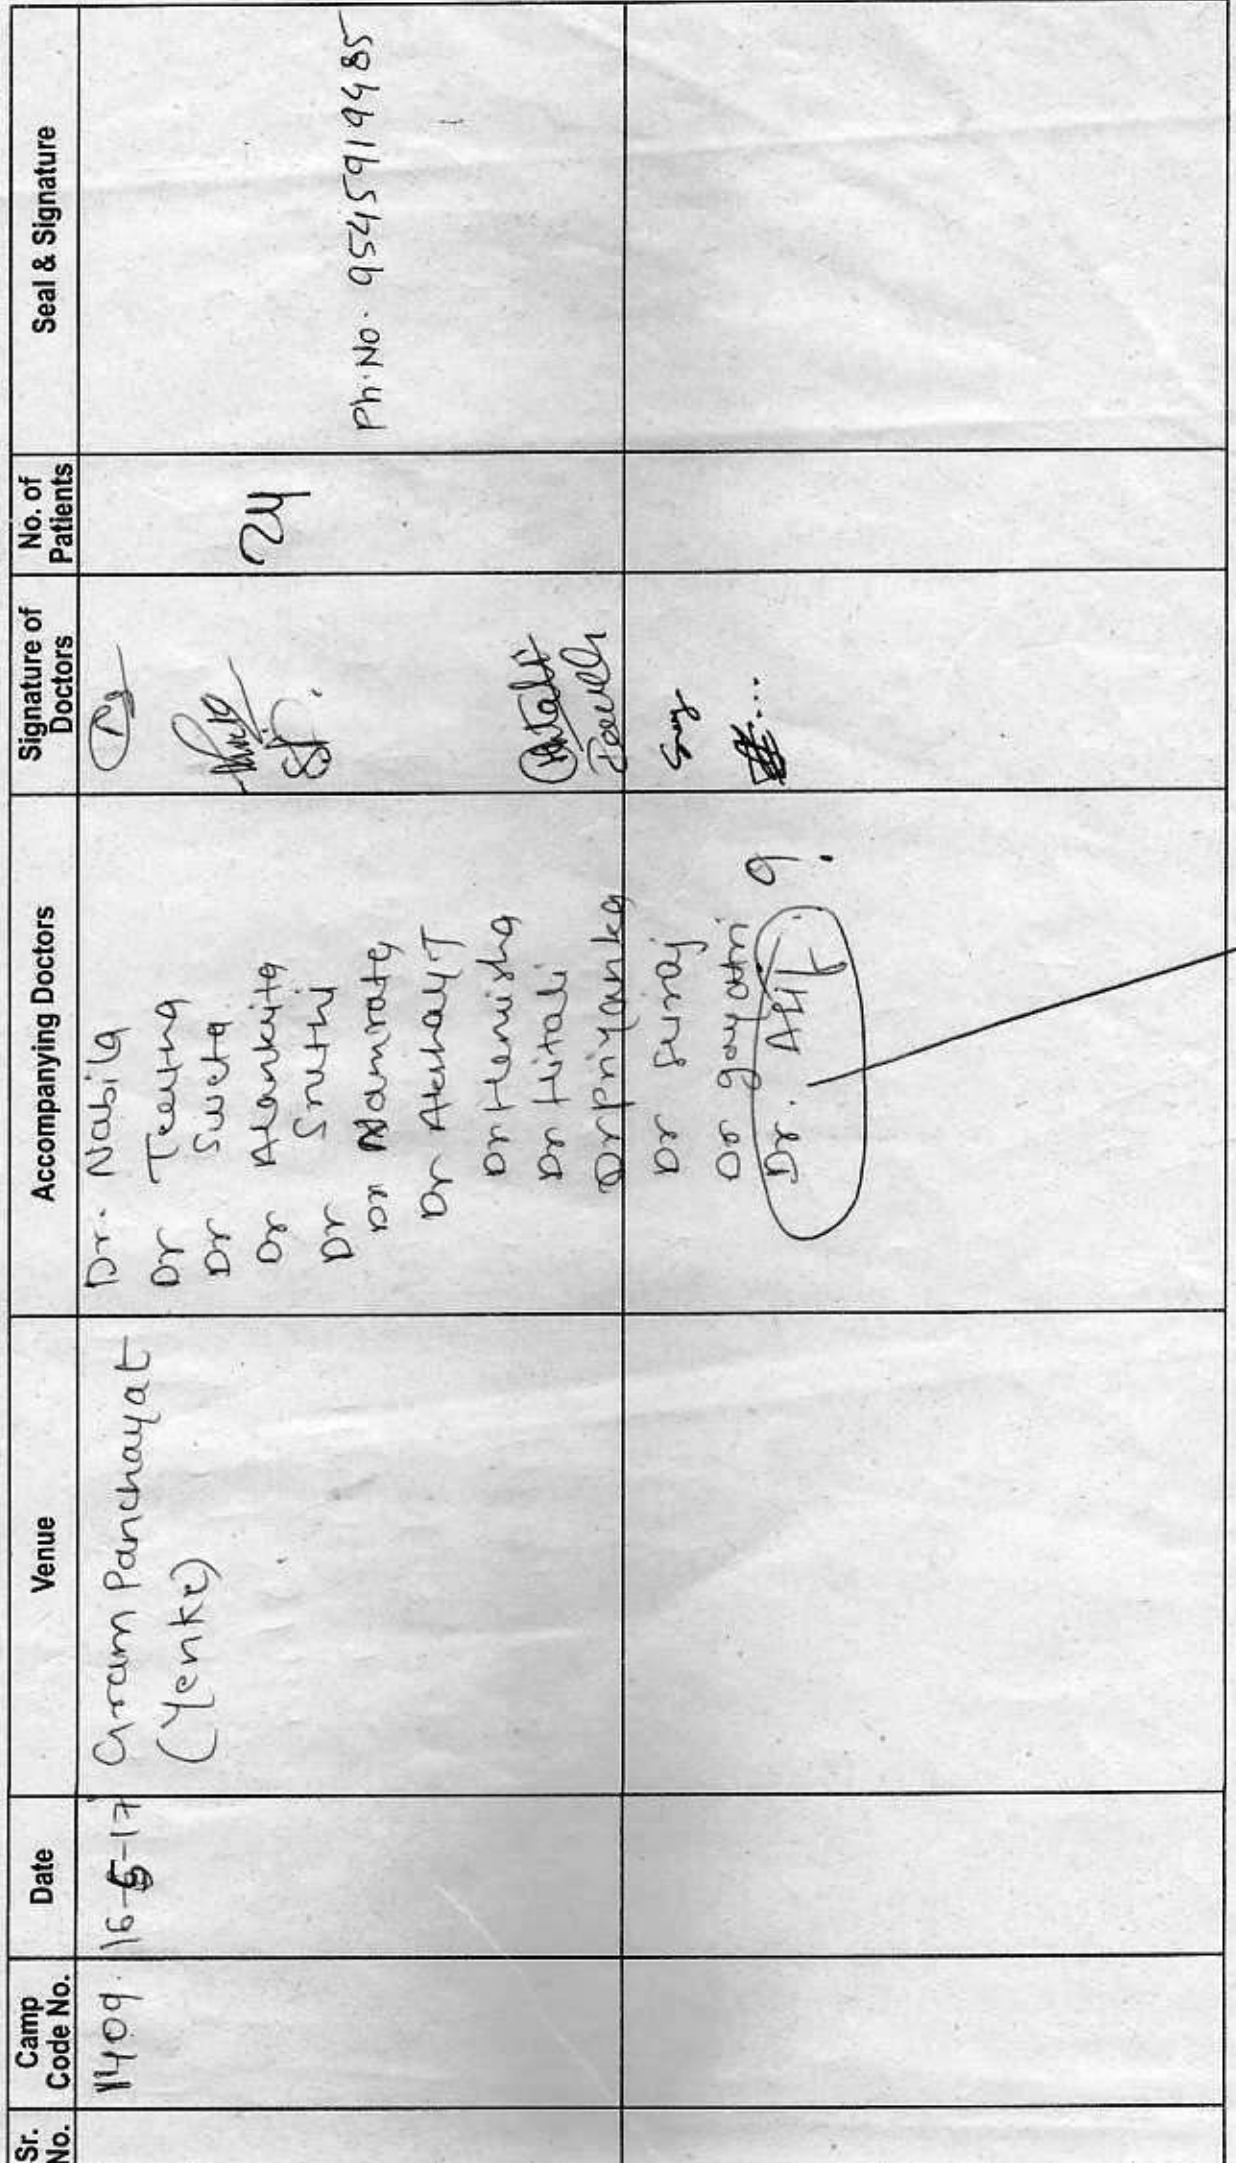 Sr. No.
Camp Code No.
Date
Venue
Accompanying Doctors
Signature of Doctors
No. of Patients
Seal & Signature
1409.
16-5-17
Gram Panchayat
(Yenke)
Dr. Nabila
Dr Teertha
Dr Sweta
Dr Alankrita
Dr Sruthi
Dr Namrata
Dr Akshay T
Dr Henisha
Dr Hitali
Dr Priyanka
24
Ph. No. 9545919485
Dr Suraj
Dr gayatri
Dr. Afif.